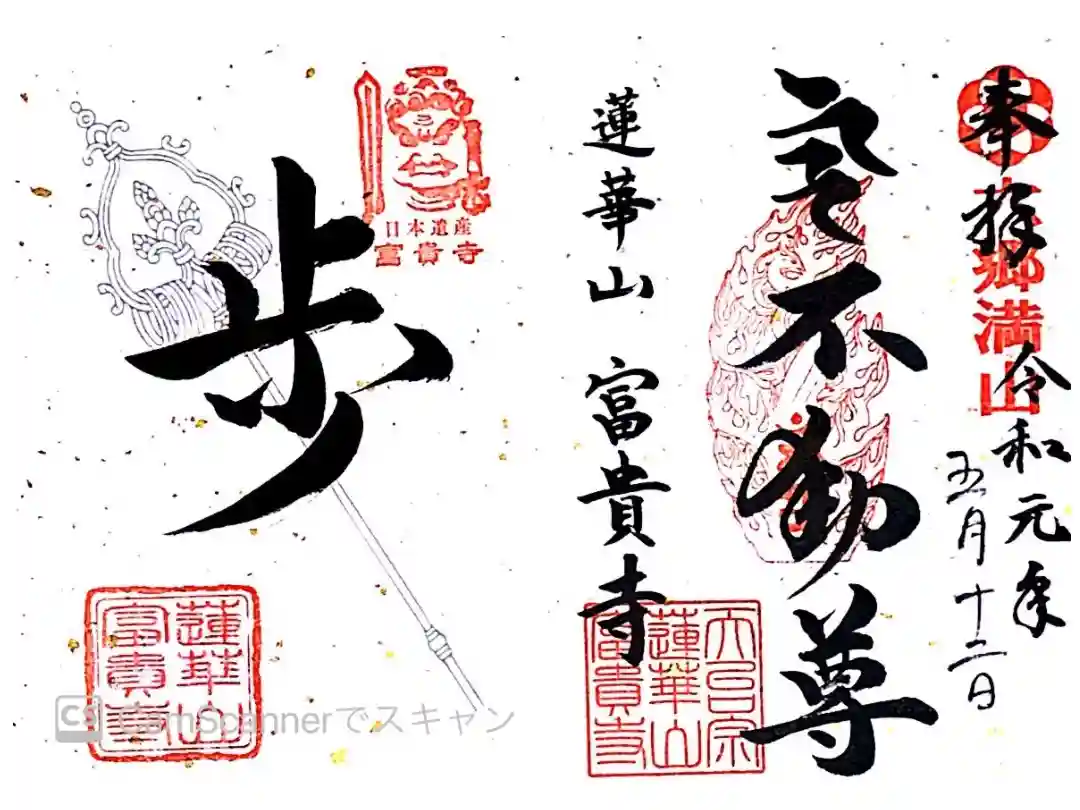 奉拝
郷満山
令和元年
五月十二日
不動尊
蓮華山 富貴寺
天台宗
蓮華山
富貴寺
日本遺産
富貴寺
歩
蓮華山
富貴寺
CS CamScannerでスキャン